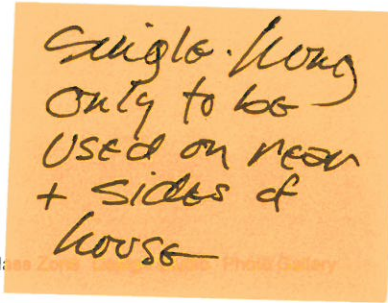 Single-hung
only to be
used on rear
+ sides of
house
Zone
Photo Gallery